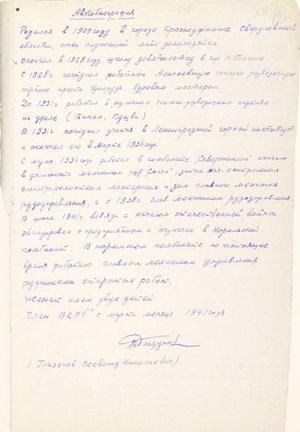 Автобиография
Родился в 1909 году в городе Красноуфимске Свердловской
области, отец служащий мать домохозяйка
Окончил в 1928 году школу девятилетку в гор. Н.Тагиле
С 1928г. поступил работать в геолого разведочную
партию буровым мастером
До 1931г работал в разных геолого-разведочных партиях
на урале (Тагил, Кушва)
В 1931г. поступил учится в Ленинградский горный институт
и окончил его в Марте 1936 года.
С 1936 года работал в комбинате "Североникель"
в должности механика центральной
электроремонтной мастерской и зам. главного механика
рудоуправления, а с 1938г. глав. механиком рудоуправления.
В июле 1941г. в связи с началом отечественной войны
эвакуирован с предприятием и назначен в Норильский
комбинат. В норильском комбинате по настоящее
время работаю главным механиком управления
рудниками открытых работ.
Женат имею двух детей
Член ВКП/б с марта месяца 1941 года
(Глазунов Всеволод Николаевич)